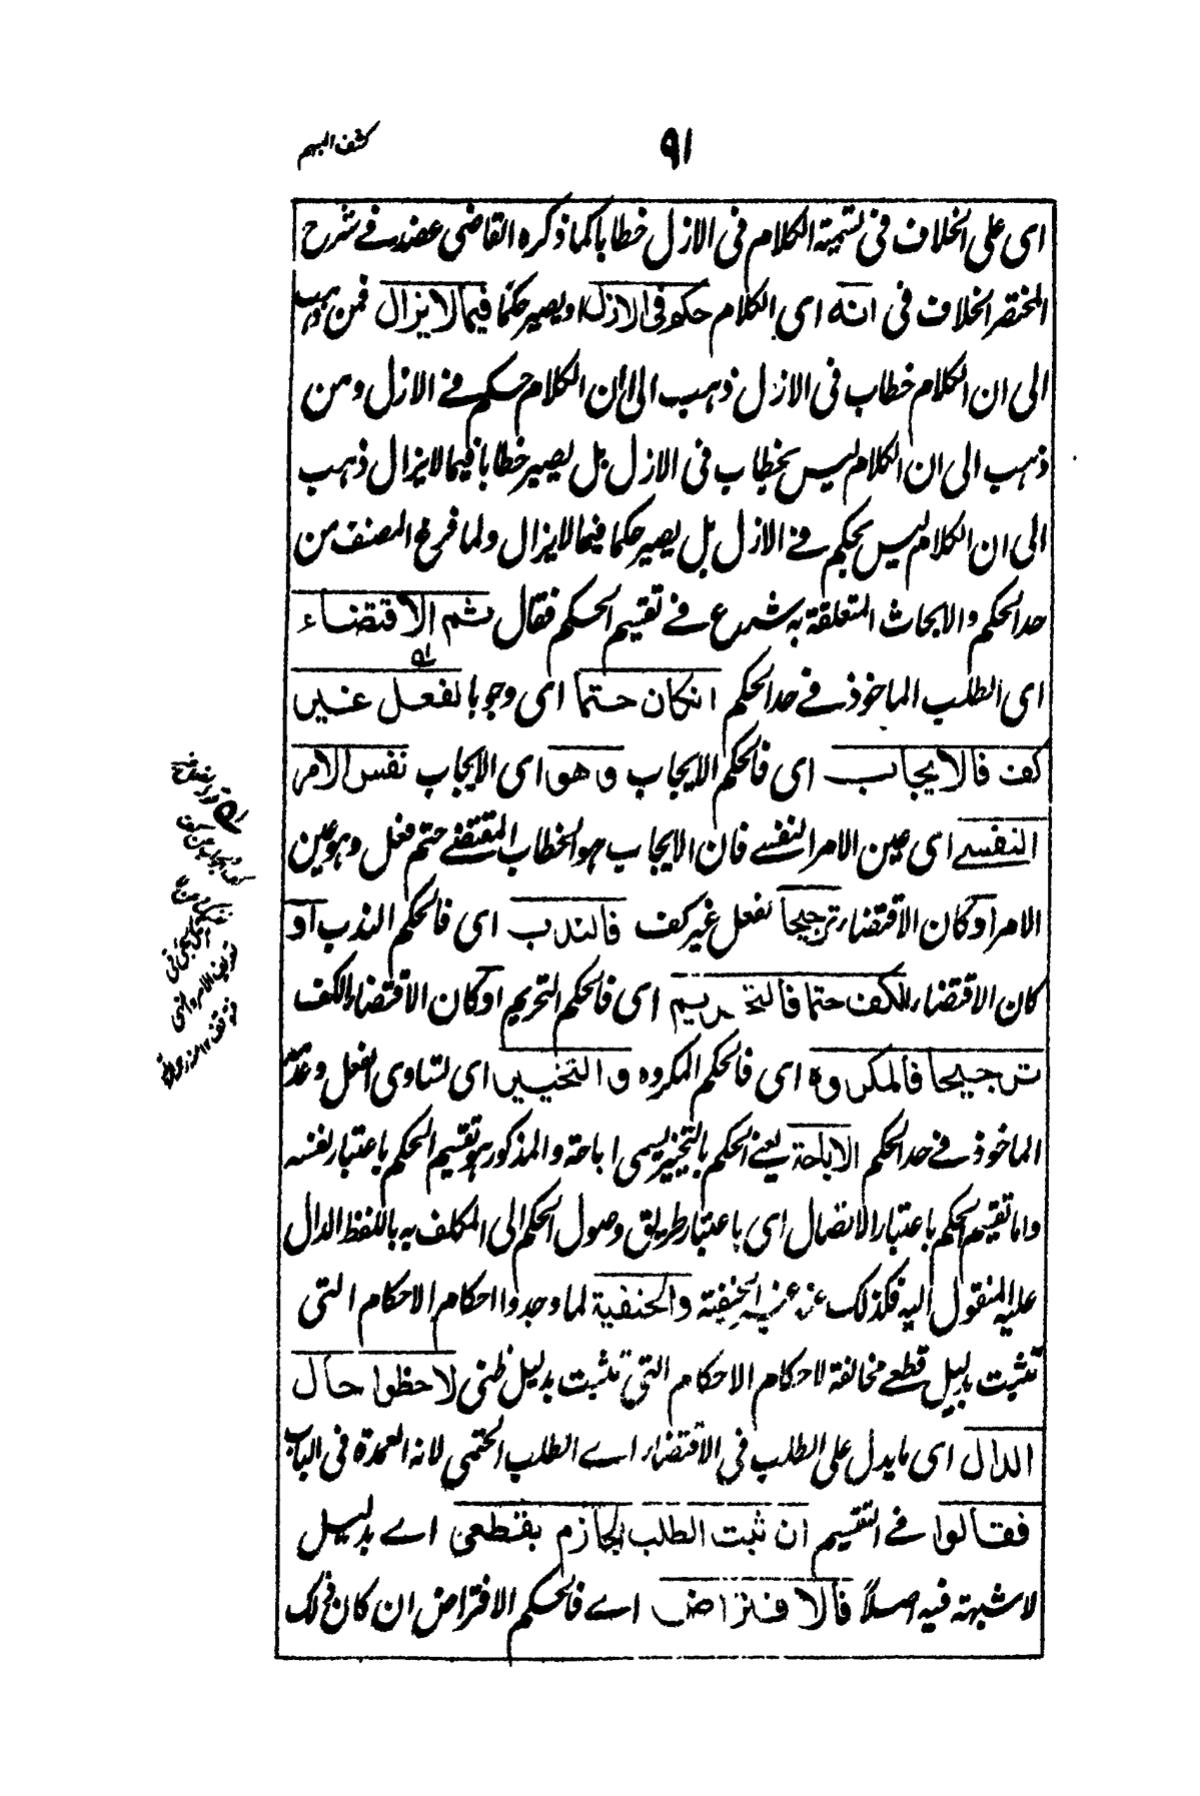 ٩١
كشف المبهم
اى على الخلاف فى تسمية الكلام فى الازل خطابا كما ذكره القاضى عضد فے شرح
المختصر الخلاف فى انه اى الكلام حكم فى الازل او يصير حكما فيما لا يزال فمن ذهب
الى ان الكلام خطاب فى الازل ذهب الى ان الكلام حكم فے الازل ومن
ذهب الى ان الكلام ليس بخطاب فى الازل بل يصير خطابا فيما لا يزال ذهب
الى ان الكلام ليس بحكم فے الازل بل يصير حكما فيما لا يزال ولما فرغ المصنف من
حد الحكم والابحاث المتعلقة به شرع فے تقسيم الحكم فقال ثم الاقتضاء
اى الطلب الماخوذ فے حد الحكم انكان حتما اى وجوبا لفعل غير
كف فالايجاب اى فالحكم الايجاب وهو اى الايجاب نفس الامر
النفسے اى عين الامر النفسے فان الايجاب هو الخطاب المقتضے حتم فعل وهو عين
الامر او كان الاقتضاء ترجيحا لفعل غير كف فالندب اى فالحكم الندب او
كان الاقتضاء للكف حتما فالتحريم اى فالحكم التحريم او كان الاقتضاء للكف
ترجيحا فالمكروه اى فالحكم المكروه والتخيير اى تساوى الفعل وعدمه
الماخوذ فے حد الحكم الاباحة يعنے الحكم بالتخيير يسمى اباحة والمذكور هو تقسيم الحكم باعتبار نفسه
واما تقسيم الحكم باعتبار الاتصال اى باعتبار طريق وصول الحكم الى المكلف به باللفظ الدال
عليه المنقول اليه فكذلك عند غير الحنفية والحنفية لما وجدوا احكام الاحكام التى
تثبت بدليل قطعے مخالفة لاحكام الاحكام التى تثبت بدليل ظنى لاحظوا حال
الدال اى ما يدل على الطلب فى الاقتضاء اے الطلب الحتمى لانه العمدة فى الباب
فقالوا فے التقسيم ان ثبت الطلب الجازم بقطعى اے بدليل
لا شبهة فيه اصلاً فالافتراض اے فالحكم الافتراض ان كان ذلك